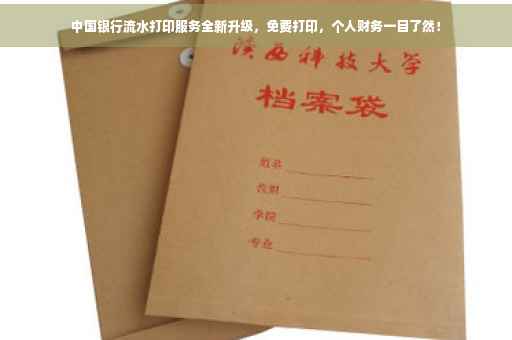 中国银行流水打印服务全新升级，免费打印，个人财务一目了然！
陕西科技大学
档案袋
学院
专业